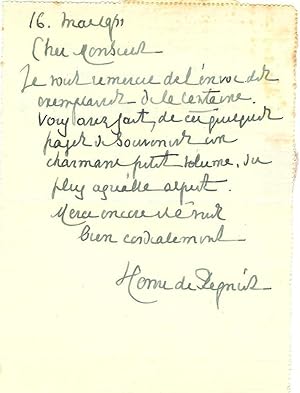 16. Mars 1911
Cher Monsieur
Je vous remercie de l'envoi des
exemplaires de la Centaine.
Vous avez fait, de ces quelques
pages de Souvenirs un
charmant petit volume, du
plus agréable aspect.
Merci encore et à vous
bien cordialement
Henri de Régnier